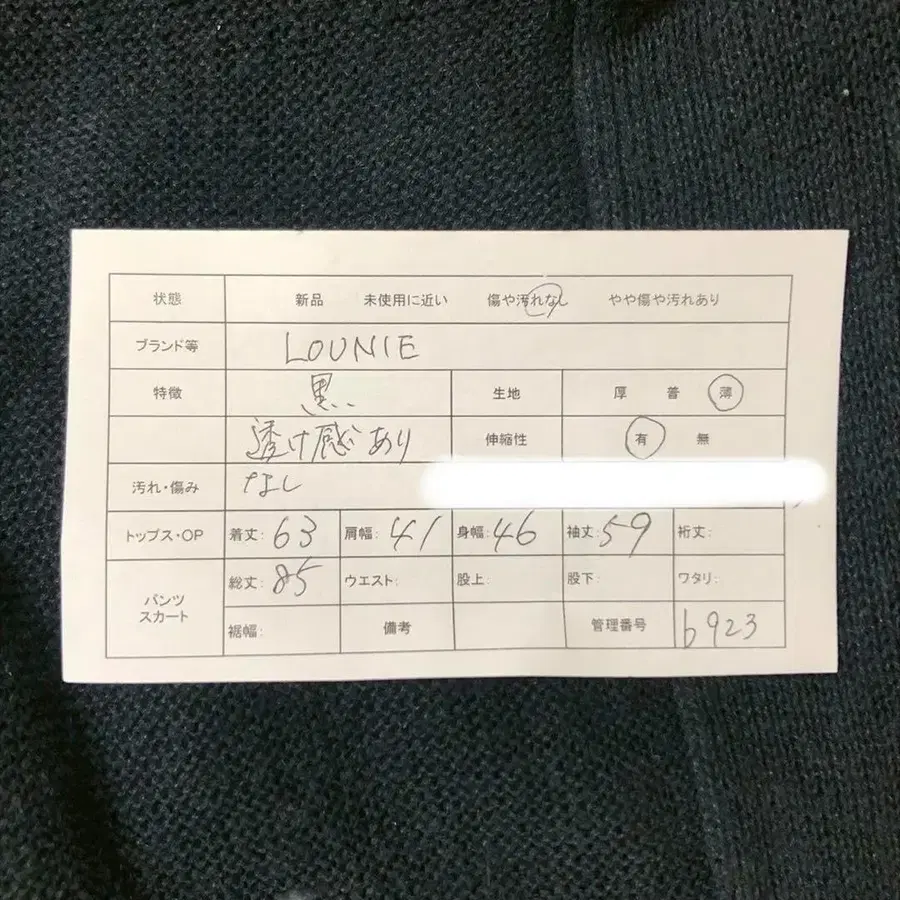 状態 新品 未使用に近い 傷や汚れなし やや傷や汚れあり
ブランド等 LOUNIE
特徴 黒 生地 厚 普 薄
透け感あり 伸縮性 有 無
汚れ・傷み なし
トップス・OP 着丈: 63 肩幅: 41 身幅: 46 袖丈: 59 裄丈:
パンツ スカート 総丈: 85 ウエスト: 股上: 股下: ワタリ:
裾幅: 備考 管理番号 b923